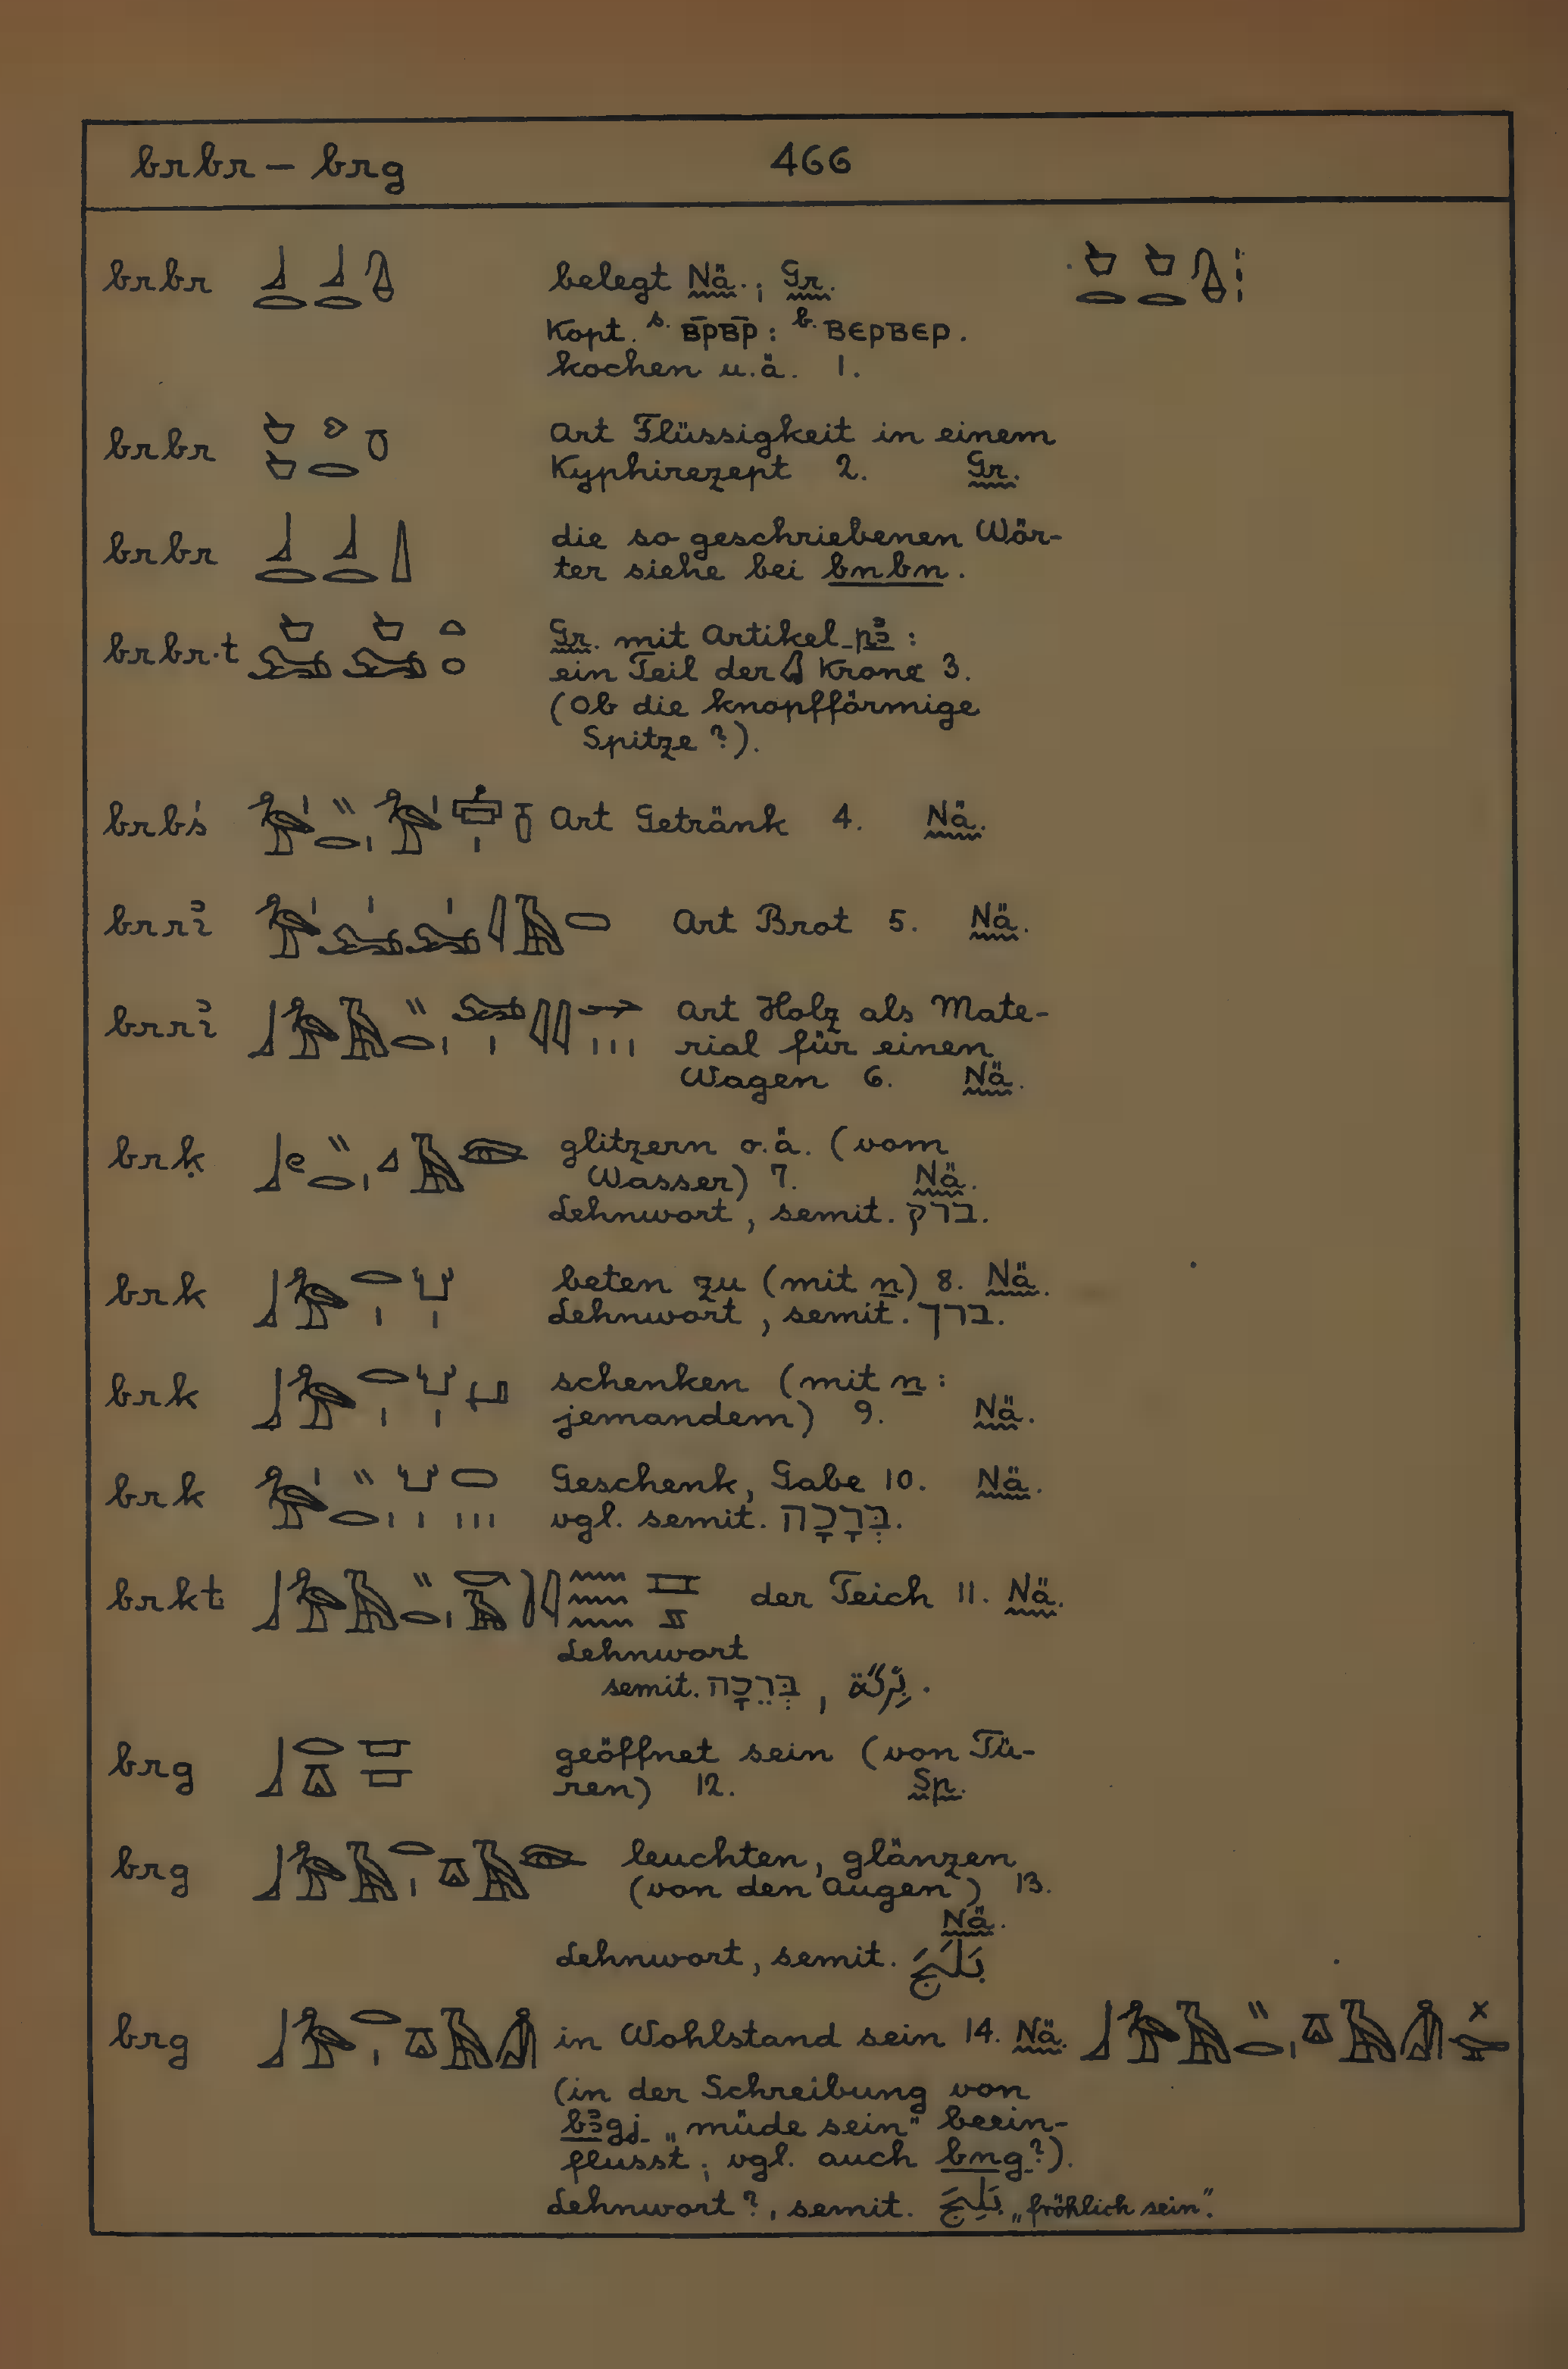 brbr – brg 466
brbr belegt Nä.; Gr.
Kopt. s. ⲃ̅ⲣⲃ̅ⲣ : b. ⲃⲉⲣⲃⲉⲣ.
kochen u.ä. 1.
brbr Art Flüssigkeit in einem
Kyphirezept 2. Gr.
brbr die so geschriebenen Wör-
ter siehe bei bnbn.
brbr·t Gr. mit Artikel pꜣ :
ein Teil der Krone 3.
(Ob die knopfförmige
Spitze?).
brbś Art Getränk 4. Nä.
brrꞽ Art Brot 5. Nä.
brrꞽ Art Holz als Mate-
rial für einen
Wagen 6. Nä.
brḳ glitzern o.ä. (vom
Wasser) 7. Nä.
Lehnwort, semit. ברק.
brk beten zu (mit n) 8. Nä.
Lehnwort, semit. ברך.
brk schenken (mit n :
jemandem) 9. Nä.
brk Geschenk, Gabe 10. Nä.
vgl. semit. בְּרָכָה.
brkt der Teich 11. Nä.
Lehnwort
semit. בְּרֵכָה, بِرْكَة.
brg geöffnet sein (von Tü-
ren) 12. Sp.
brg leuchten, glänzen
(von den Augen) 13.
Nä.
Lehnwort, semit. بَلَجَ
brg in Wohlstand sein 14. Nä.
(in der Schreibung von
bꜣgj „müde sein" beein-
flusst; vgl. auch bng?).
Lehnwort?, semit. بَلِجَ „fröhlich sein".